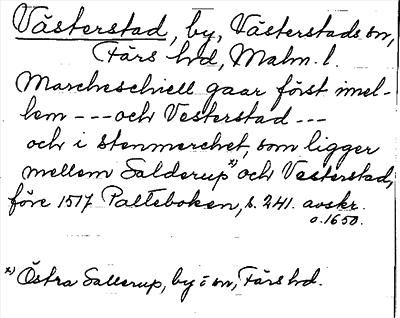 Västerstad, by, Västerstads sn,
Färs hd, Malm. l.
Marcheschiell gaar först imel-
lem --- och Vesterstad ---
och i stenmerchet, som ligger
mellem Salderup x) och Vesterstad,
före 1517 Palteboken, s. 241. avskr.
o. 1650.
x) Östra Sallerup, by i sn, Färs hd.